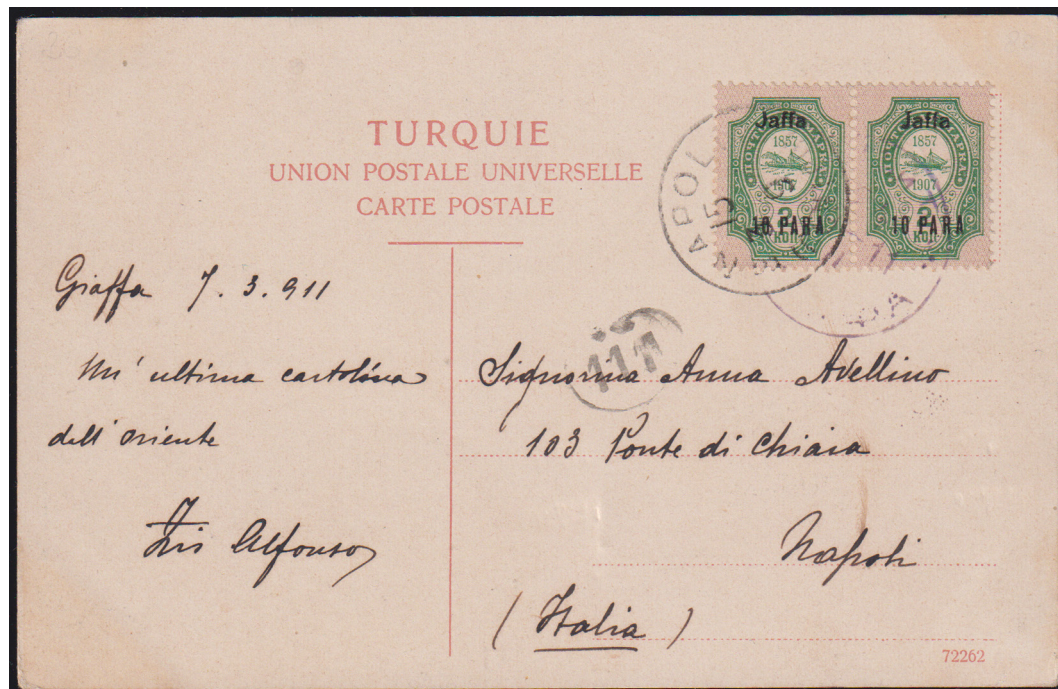 TURQUIE
UNION POSTALE UNIVERSELLE
CARTE POSTALE
Giaffa 7. 3. 911
Un' ultima cartolina
dell' oriente
Zio Alfonso
Jaffa
1857
ПОЧТОВАЯ МАРКА
1907
10 PARA
2
КОП
Jaffa
1857
ПОЧТОВАЯ МАРКА
1907
10 PARA
2
КОП
NAPOLI
15
117
Signorina Anna Avellino
103 Ponte di Chiaia
Napoli
(Italia)
72262